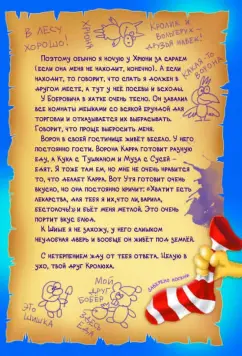 В ЛЕСУ
ХОРОШО!
ХРЮНЯ
КРОЛИК И
ВОЛЬФРУМ -
ДРУЗЬЯ НАВЕК!
КАКАЯ-ТО
ВОРОНА
Поэтому обычно я ночую у Хрюни за сараем
(если она меня не находит, конечно). А если
находит, то говорит, что спать я должен в
другом месте, а тут у неё посевы и всходы.
У Бобровича в хатке очень тесно. Он завалил
все комнаты мешками со всякой ерундой для
торговли и отказывается их выбрасывать.
Говорит, что проще выбросить меня.
Ворон в своей гостинице живёт весело. У него
постоянно гости. Ворона Карра готовит разную
еду, а Кука с Тушканом и Муза с Сусей -
едят. Я тоже там ем, но мне не очень нравится
то, что делает Карра. Вот Утя готовит очень
вкусно, но она постоянно кричит: «Хватит есть
лекарства, для тебя я их, что ли, варила,
бестолочь!» и бьёт меня метлой. Это очень
портит вкус еды.
К Шише я не захожу, у него слишком
неудобная дверь и вообще он живёт под землёй.
С нетерпением жду от тебя ответа. Целую в
ухо, твой друг Кролюха.
ЭТО
ШИШКА
МОЙ
ДРУГ
БОБЁР
ЗДЕСЬ
ЕДА